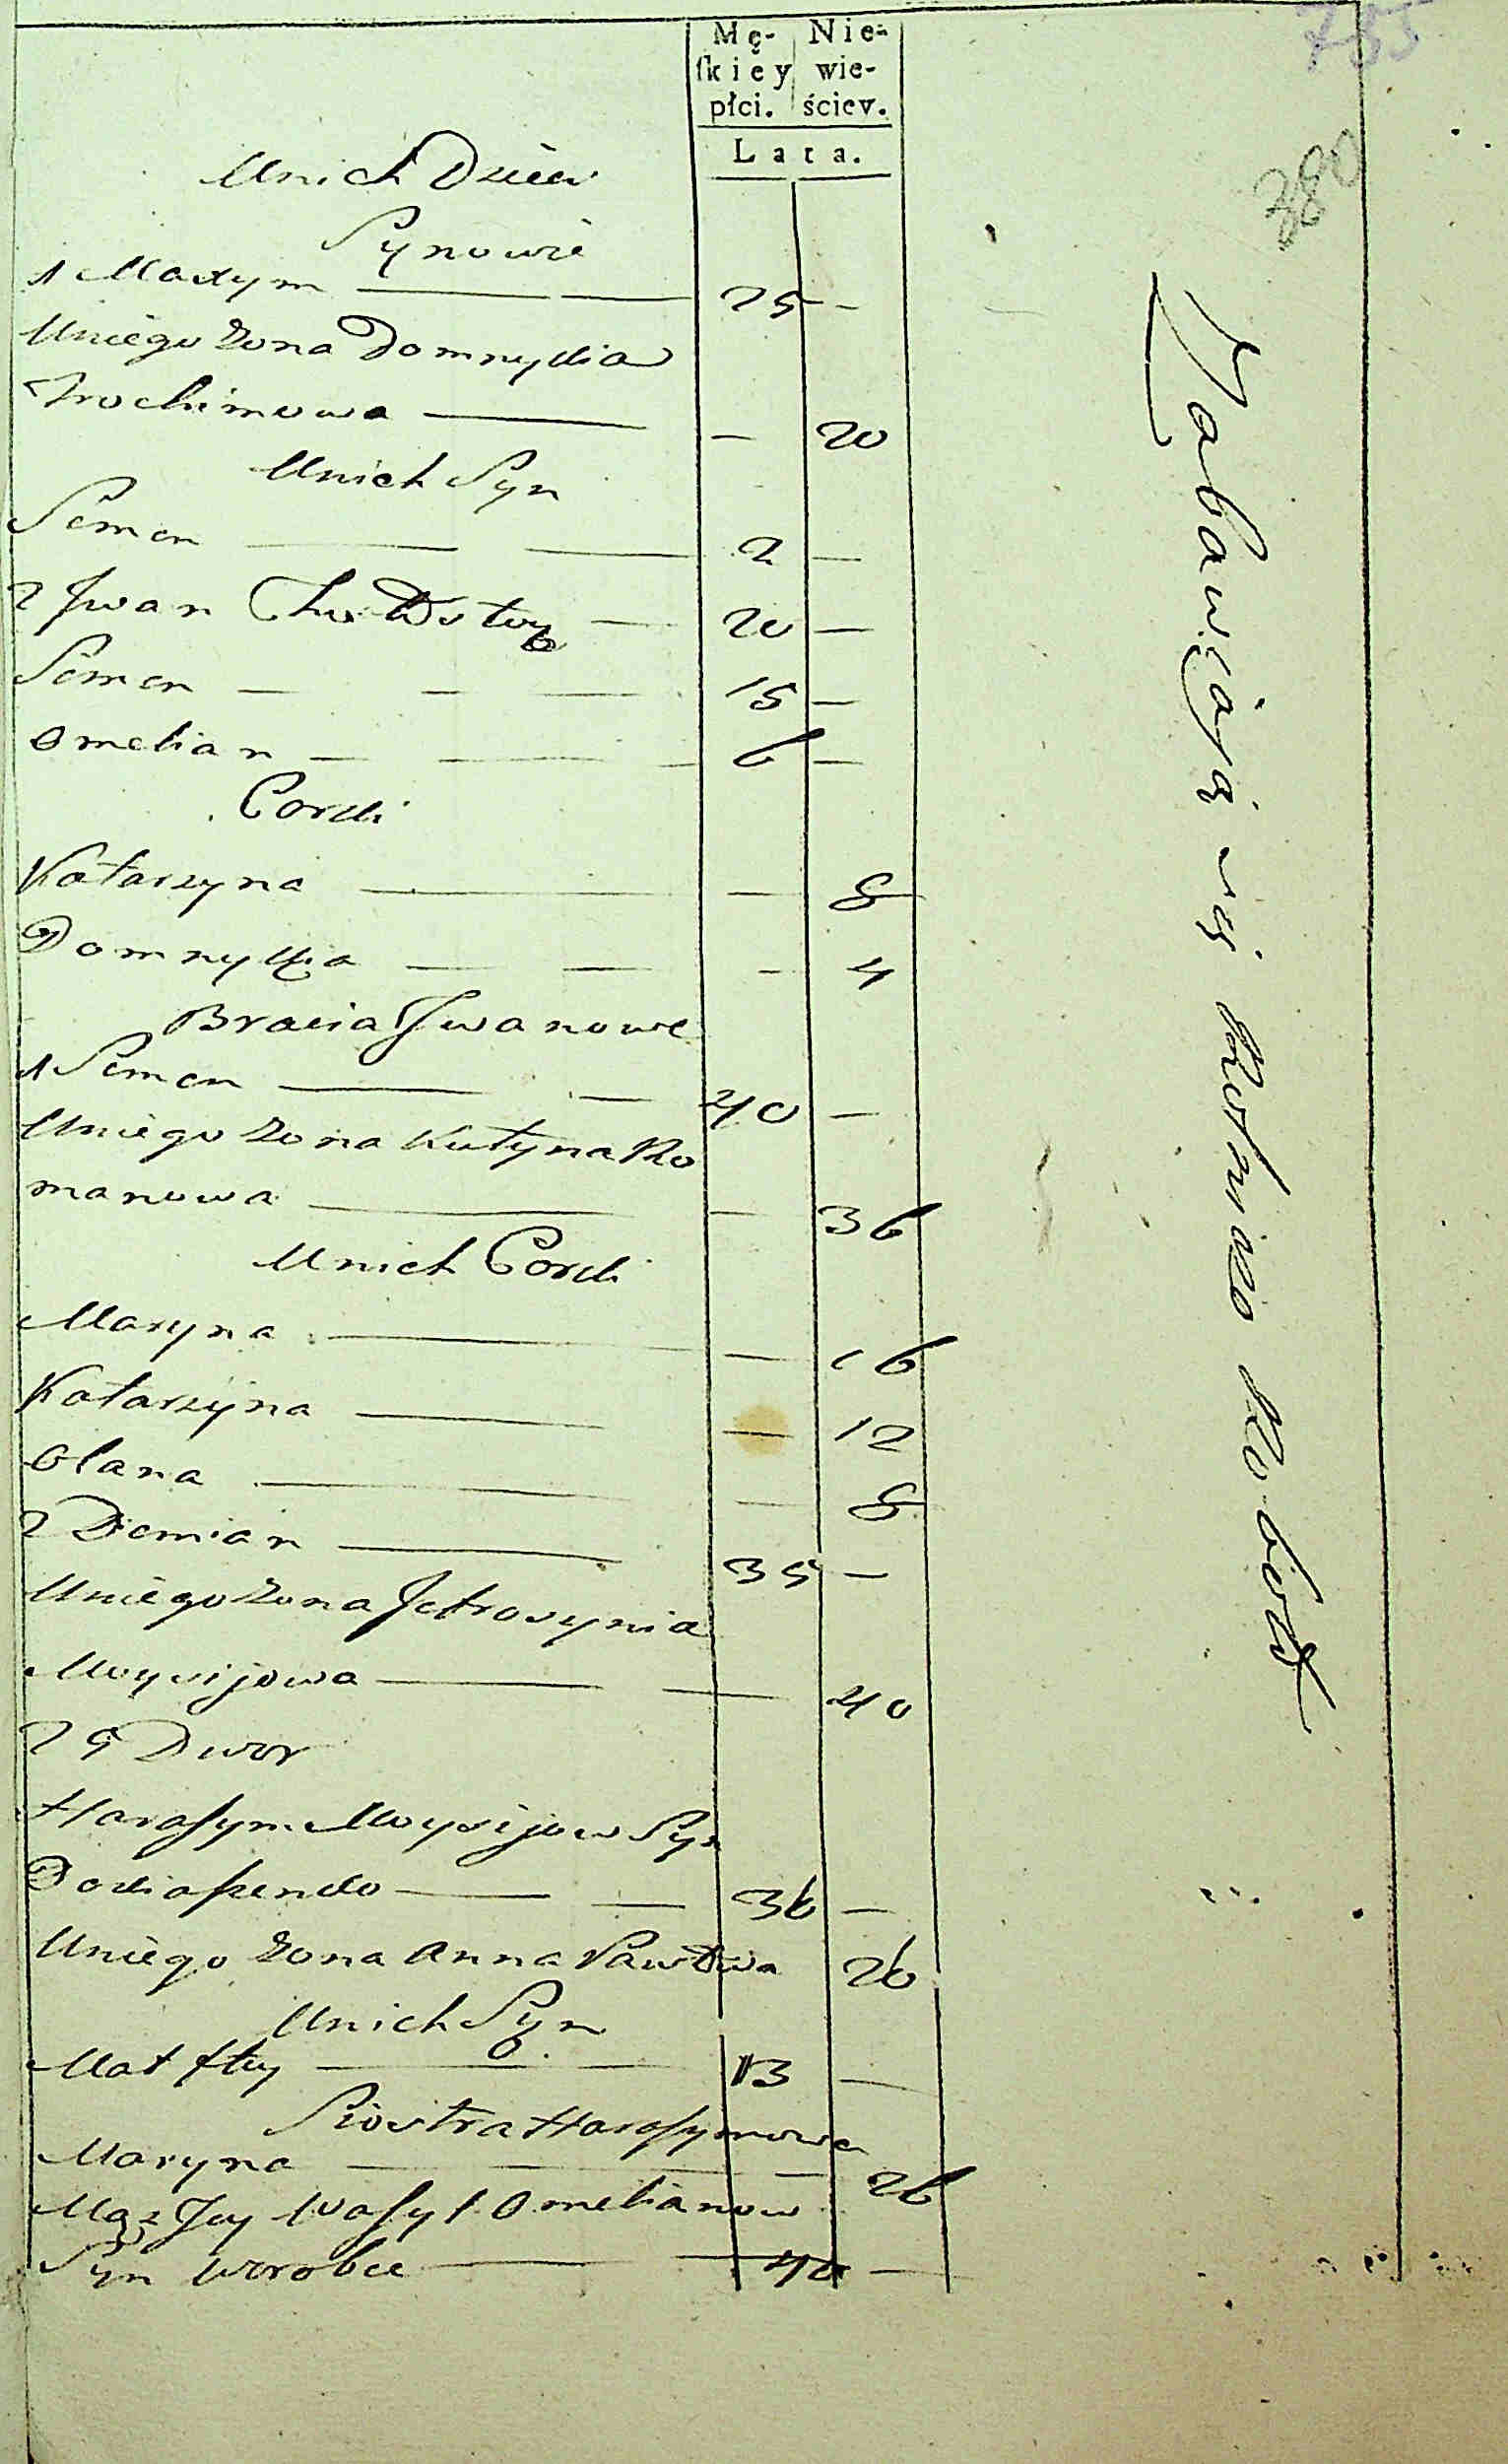 755
380
Mę- Nie-
ſkiey wie-
płci. ściey.
Lata.
Unich Dzieci
Synowie
1 Maxym — — 25 —
Uniego Zona Domnykia
Trochimowa — — 20
Unich Syn
Semen — — 2 —
2 Jwan — 20 —
Semen — — — 15 —
Omelian — — — 6 —
Corki
Katarzyna — — 8
Domnykia — — — 4
Bracia Jwanowe
1 Semen — — 40 —
Uniego Zona Ro
manowa — — 36
Unich Corki
Maryna — — 16
Katarzyna — — 12
Olana — — 8
2 Demian — 35 —
Uniego Zona Jefrosynia
Moysijowa — — 40
29 Dwor
Haraſym Moysijow Syn
— — 36 —
Uniego Zona Anna Pawłowa 26
Unich Syn
Matfiy — — 13 —
Siostra Haraſymowa
Maryna — — — 26
Mąz Jey Waſyl Omelianow
Syn Worobec — — 40 —
Zabawiaią się Rolniczo Robiot